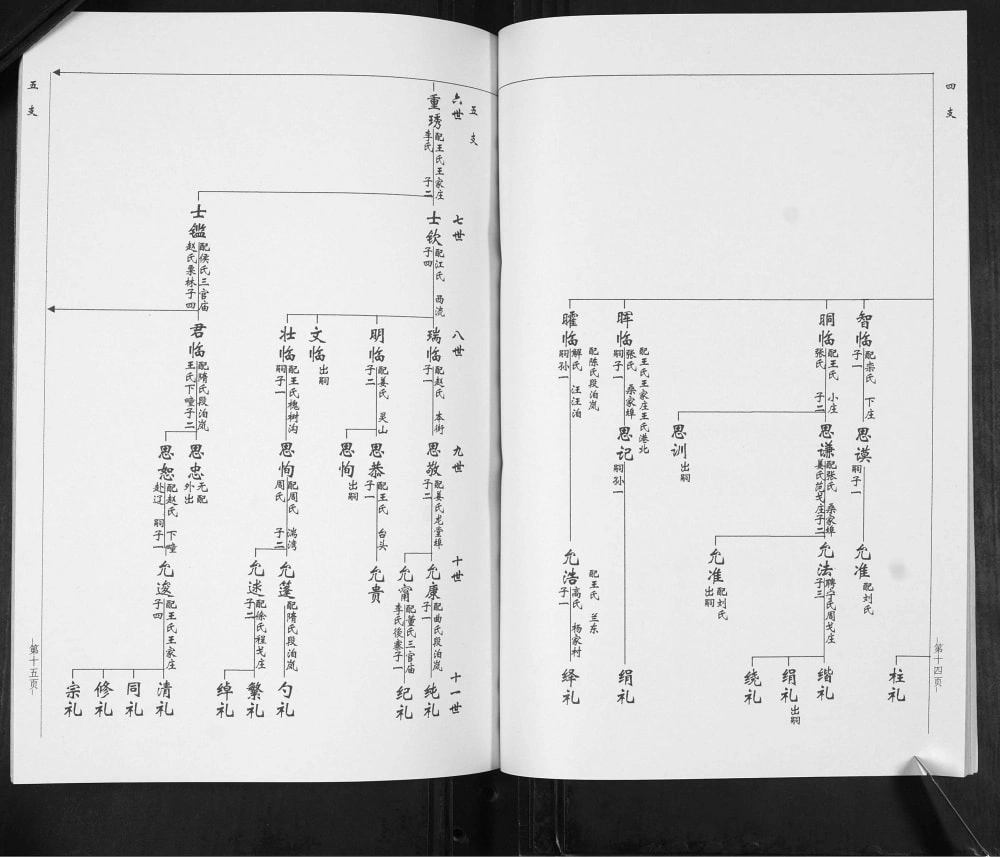 四支
智临
配栾氏 下庄
子一
思谟
嗣子一
允准
配刘氏
柱礼
眮临
配王氏 小庄
张氏 子二
思谦
配张氏 桑家埠
姜氏范戈庄子二
允法
聘宁氏周戈庄
子三
绪礼
绢礼
出嗣
绕礼
允准
配刘氏
出嗣
思训
出嗣
晖临
配王氏王家庄王氏港北
张氏 桑家埠
嗣子一
思记
嗣孙一
绢礼
曜临
配陈氏段泊岚
解氏 汪汪泊
嗣孙一
允浩
配王氏 兰东
高氏 杨家村
子一
绎礼
第十四页
五支
六世
重琇
配王氏王家庄
李氏 子二
七世
士钦
配江氏 西流
子四
八世
瑞临
配赵氏 本街
子一
九世
思敬
配姜氏龙堂埠
子二
十世
允康
配曲氏段泊岚
子一
十一世
纯礼
允甯
配董氏三官庙
李氏後寨子一
纪礼
明临
配姜氏 灵山
子二
思恭
配王氏 台头
子一
允贵
思恂
出嗣
文临
出嗣
壮临
配王氏槐树沟
嗣子一
思恂
配周氏 湍湾
周氏 子二
允蓬
配隋氏段泊岚
勺礼
允述
配徐氏程戈庄
子二
繁礼
绰礼
士鑑
配侯氏三官庙
赵氏栗林子四
君临
配隋氏段泊岚
王氏下疃子二
思忠
无配
外出
思恕
配赵氏 下疃
赴辽 嗣子一
允逡
配王氏王家庄
子四
清礼
同礼
修礼
宗礼
五支
第十五页